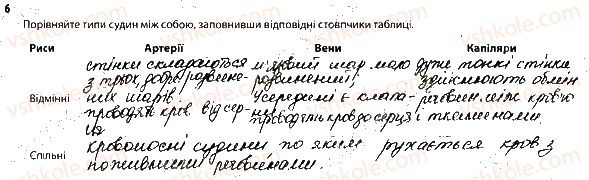 6
Порівняйте типи судин між собою, заповнивши відповідні стовпчики таблиці.
Риси Артерії Вени Капіляри
стінки складаються м'язовий шар мало дуже тонкі стінки
з трьох добре розвине- розвинений; здійснюють обмін
Відмінні них шарів. Усередині є клапа- речовин між кров'ю
проводять кров від сер- ни; проводять кров до серця і тканинами.
ця
кровоносні судини по яким рухається кров з
Спільні поживними речовинами.
vshkole.com